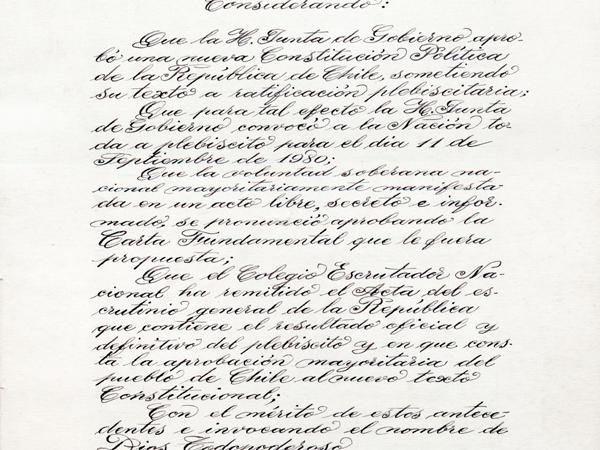 Considerando:
Que la H. Junta de Gobierno apro-
bó una nueva Constitución Política
de la República de Chile, sometiendo
su texto a ratificación plebiscitaria;
Que para tal efecto la H. Junta
de Gobierno convocó a la Nación to-
da a plebiscito para el día 11 de
Septiembre de 1980;
Que la voluntad soberana na-
cional mayoritariamente manifesta
da en un acto libre, secreto e infor-
mado, se pronunció aprobando la
Carta Fundamental que le fuera
propuesta;
Que el Colegio Escrutador Na-
cional ha remitido el Acta del es-
crutinio general de la República
que contiene el resultado oficial y
definitivo del plebiscito y en que cons-
ta la aprobación mayoritaria del
pueblo de Chile al nuevo texto
Constitucional;
Con el mérito de estos antece-
dentes e invocando el nombre de
Dios Todopoderoso